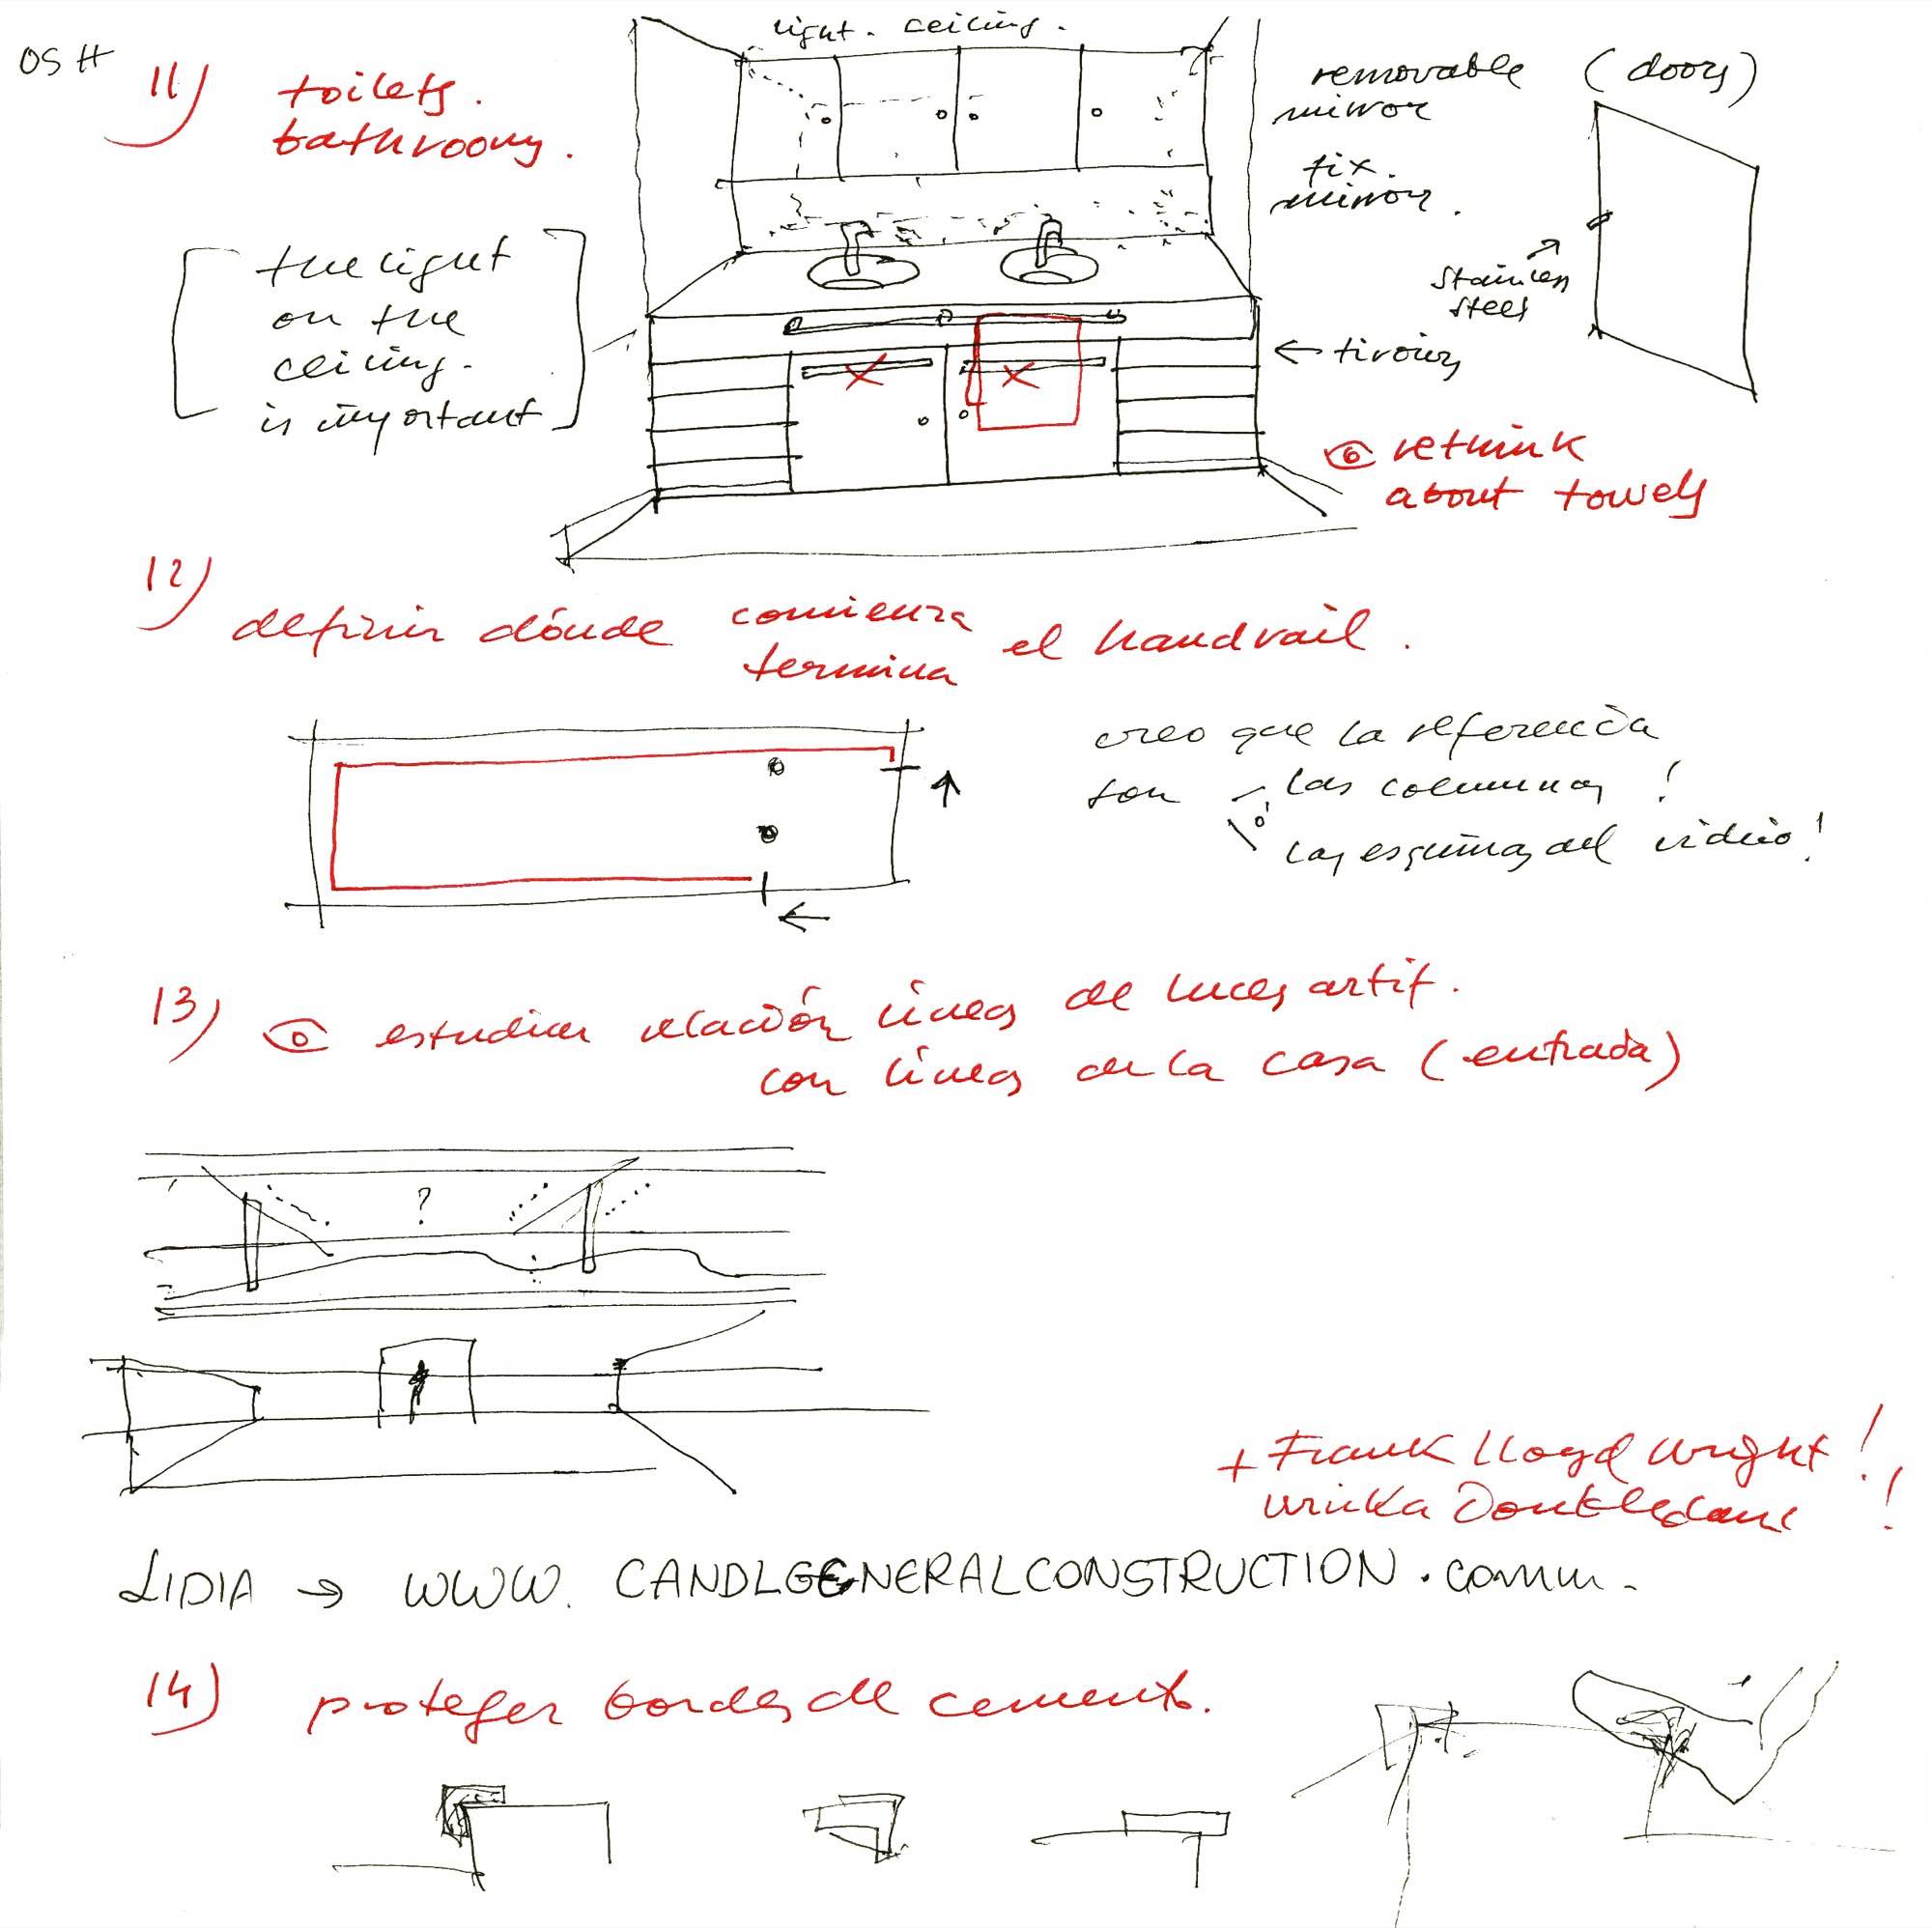 OSH
11) toilets.
bathrooms.
light. ceiling.
removable (doors)
mirror
fix.
mirror.
stainless
steel
the light
on the
ceiling.
is important
← tiroirs
rethink
about towels
12)
definir dónde comienza el handrail.
termina
creo que la referencia
son las columnas!
o
las esquinas del vidrio!
13) estudiar relación líneas de luces artif.
con líneas de la casa (entrada)
?
+ Frank Lloyd Wright!
!
LIDIA → WWW. CANDLGENERALCONSTRUCTION.comm.
14) proteger bordes de cemento.